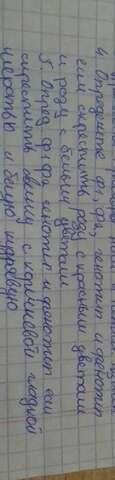 4. Определите F1, F2, генотип и фенотип
если скрестить розу с красными цветами
и розу с белыми цветами
5. Опред F1 F2 генотип и фенотип если
скрестить свинку с коричневой гладкой
шерстью и белую кудрявую